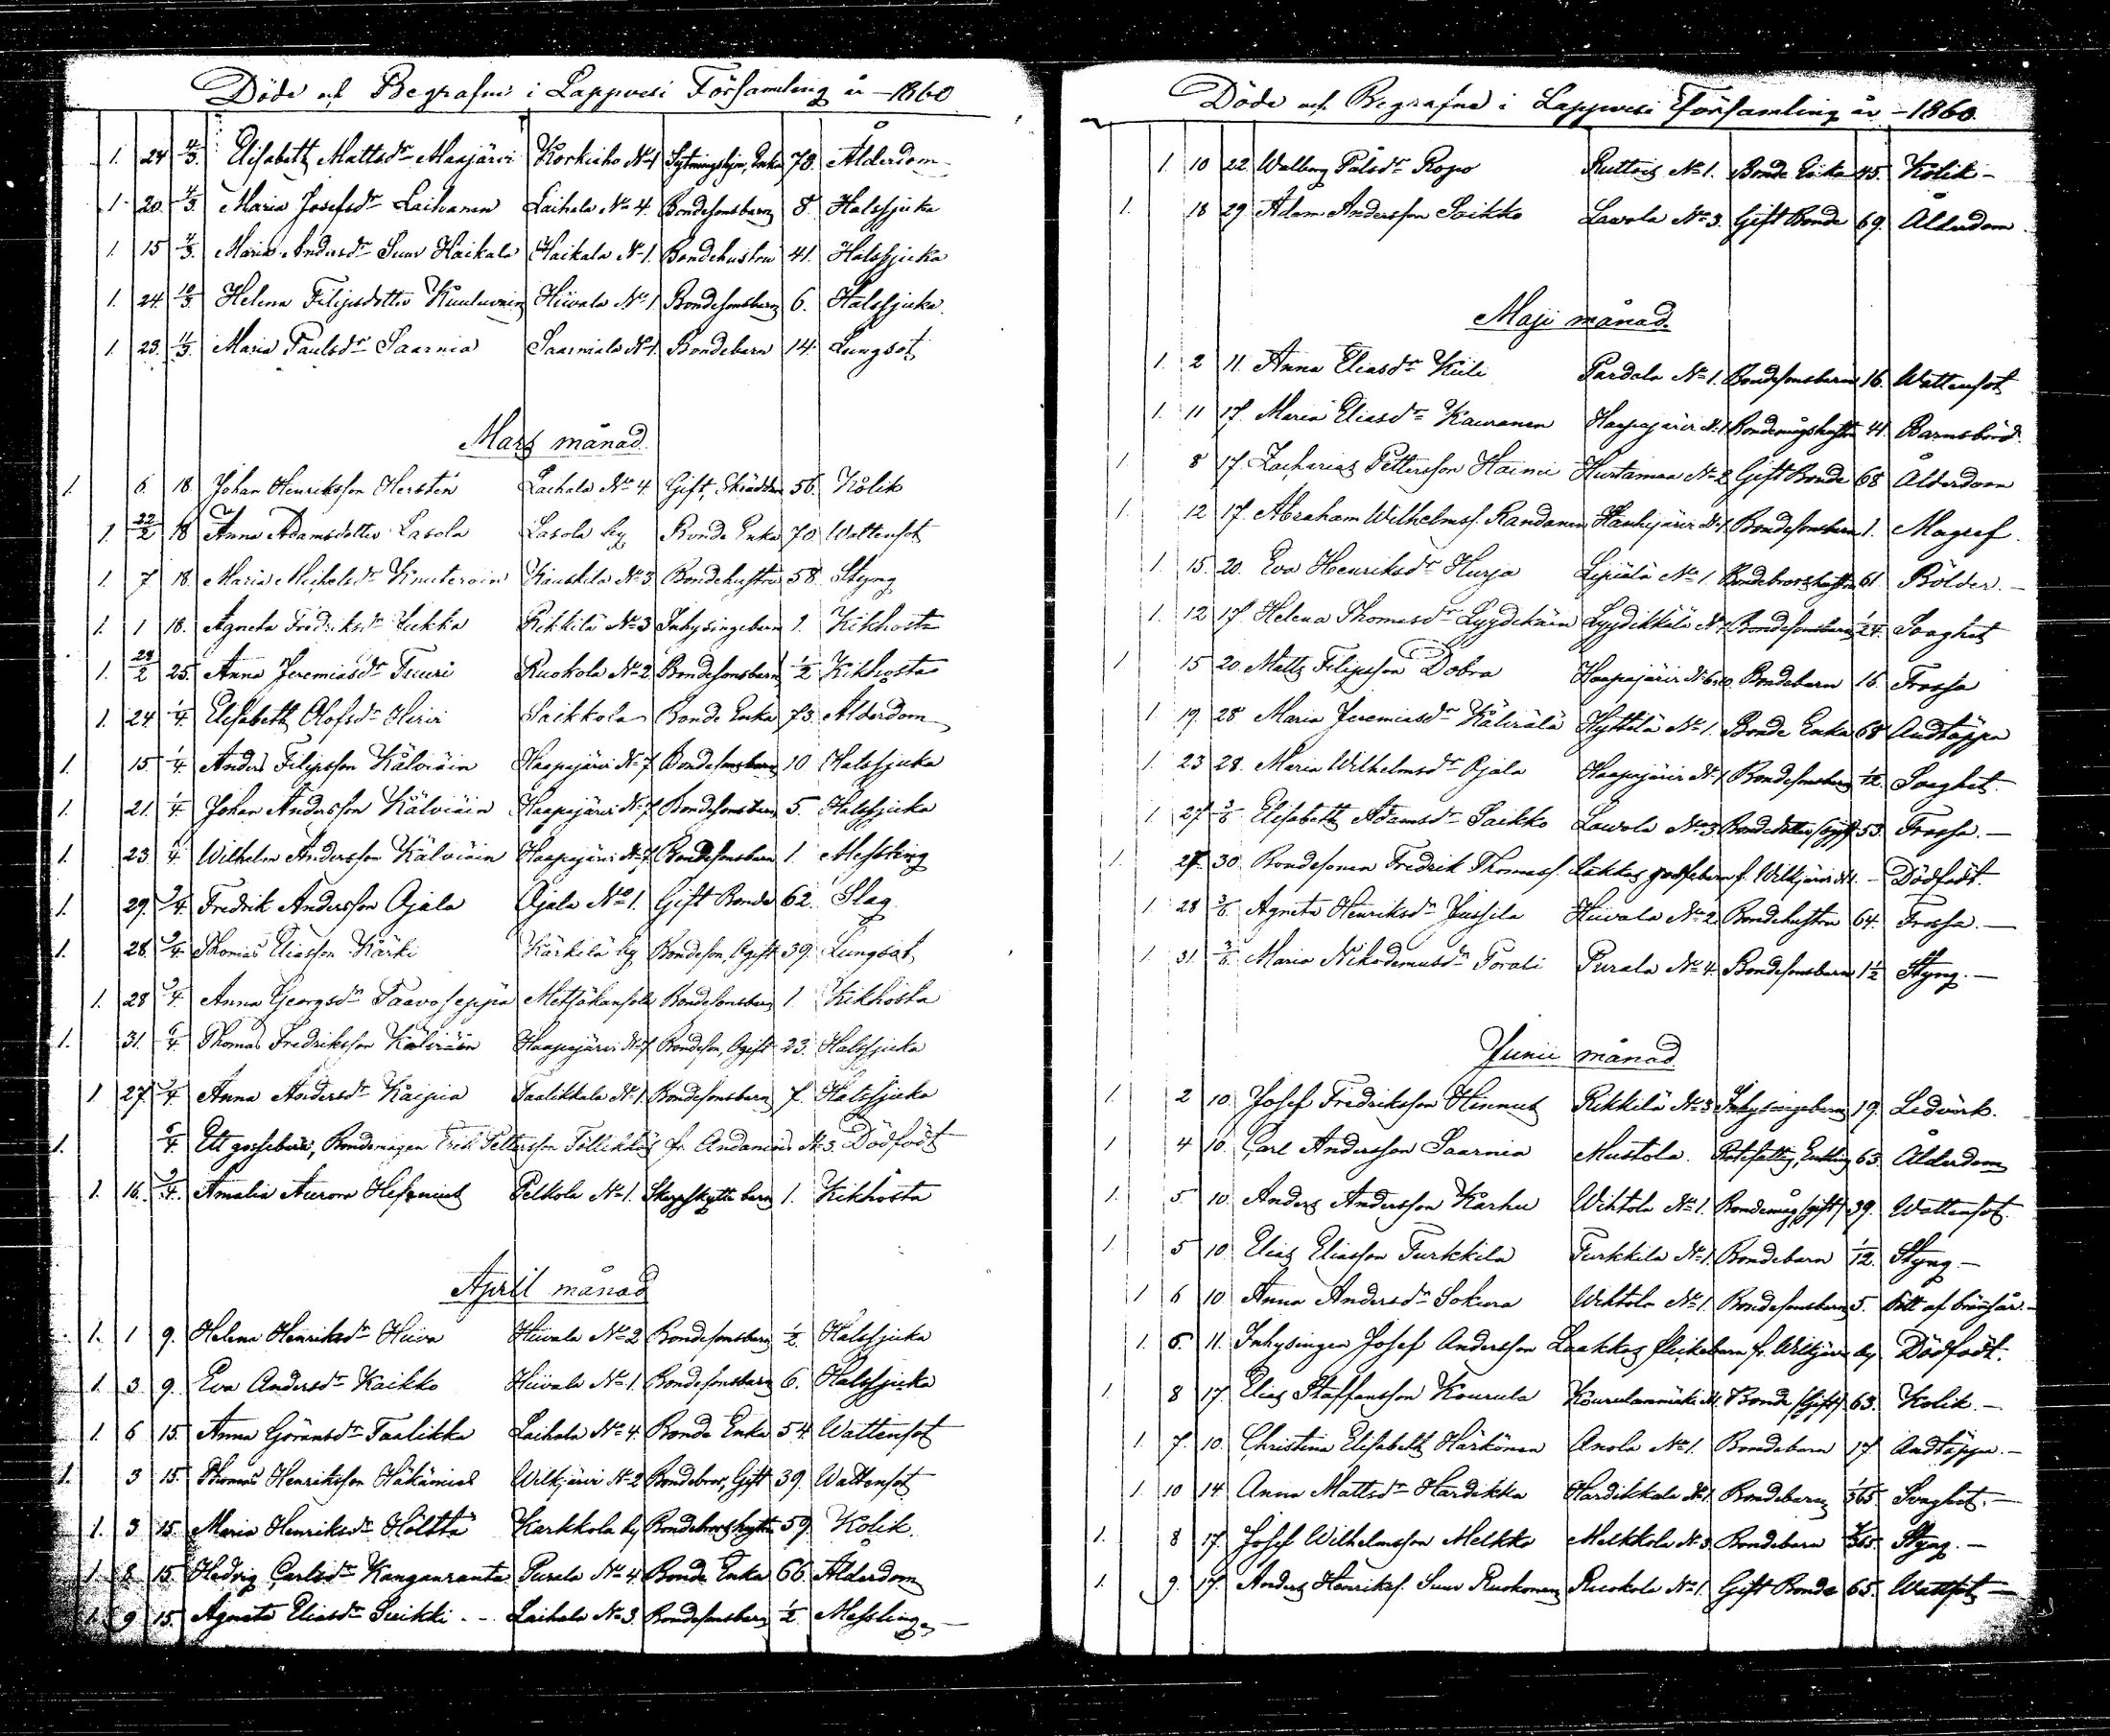 Döde och Begrafne i Lappvesi Församling år 1860
1. 24 4/3. Elisabeth Mattsdr Maajärvi Korkiaho No 1 Sytningshjon, Enka 78. Ålderdom
1. 20. 4/3. Maria Josefsdr Laihanen Laihala No 4. Bondesonsbarn 8. Halssjuka
1. 15 4/3. Maria Andersdr Suur Haikala Haikala No 1. Bondehustru 41. Halssjuka
1. 24. 10/3. Helena Filipsdotter Kuuluvain Hiivala No 1 Bondesonsbarn 6. Halssjuka
1. 23. 11/3. Maria Paulsdr Saarnia Saarniala No 1. Bondebarn 14. Lungsot
Mars månad.
1. 6. 18. Johan Henriksson Hersten Laihala No 4. Gift, Skräddare 56. Kolik
1. 22/2 18 Anna Adamsdotter Lasola Lasola by Bonde Enka 70 Wattensot
1. 7 18. Maria Michelsdr Knuterain Kauskila No 3. Bondehustru 58. Styng
1. 1 18. Agneta Fredriksdr Jukka Rikkilä No 3 Inhysingebarn 1. Kikhosta
1. 28/2 25. Anna Jeremiasdr Tsuuri Ruokola No 2 Bondesonsbarn 1/2 Kikhosta
1. 24 1/4 Elisabeth Olofsdr Hiiri Saikkola Bonde Enka 73. Ålderdom
1. 15 1/4. Anders Filipsson Kälviäin Haapajärvi No 7 Bondesonsbarn 10 Halssjuka
1. 21. 1/4. Johan Andersson Kälviäin Haapajärvi No 7 Bondesonsbarn 5. Halssjuka
1. 23. 1/4 Wilhelm Andersson Kälviäin Haapajärvi No 7. Bondesonsbarn 1. Messling
1. 29. 2/4. Fredrik Andersson Ojala Ojala No 1. Gift Bonde 62. Slag
1. 28. 2/4. Thomas Eliasson Kärki Kärkilä by Bondeson, Ogift 39. Lungsot
1. 28 2/4 Anna Georgsdr Taavoseppä Metsäkansola Bondesonsbarn 1. Kikhosta
1. 31. 6/4. Thomas Fredriksson Kälviäin Haapajärvi No 7 Bondeson, Ogift 23. Halssjuka
1 27. 2/4. Anna Andersdr Kaipia Taalikkala No 1. Bondesonsbarn 7. Halssjuka
1. 6/4. Ett gossebarn, Bondemågen Erik Pettersson Töllikkös fr. No 3. Dödfödt
1. 16. 2/4. Amalia Aurora Pelkola No 1. barn 1. Kikhosta
April månad
1. 1 9. Helena Henriksdr Hiiva Hiivala No 2 Bondesonsbarn 1/2. Halssjuka
1. 3 9. Eva Andersdr Kaikko Hiivala No 1. Bondesonsbarn 6. Halssjuka
1. 6 15. Anna Göransdr Taalikka Laihala No 4. Bonde Enka 54. Wattensot
1. 3 15. Thomas Henriksson Häkämies Wilkjärvi No 2 Bondebror, Gift 39. Wattensot
1. 3 15. Maria Henriksdr Hölttä Karkkola by Bondebrors hustru 59. Kolik.
1. 8. 15. Hedvig Carlsdr Kanganranta Purala No 4. Bonde Enka 66. Ålderdom
1. 9 15. Agneta Eliasdr Suikki Laihala No 3. Bondesonsbarn 1/2. Messling
Döde och Begrafne i Lappvesi Församling år 1860.
1. 10 22. Walborg Pålsdr Ropo Ruttois No 1. Bonde Enka 45. Kolik
1. 18 29. Adam Andersson Saikko Lavola No 3. Gift Bonde 69. Ålderdom
Maji månad.
1. 2 11. Anna Eliasdr Kiili Pardala No 1. Bondesonsbarn 16. Wattensot
1. 11 17. Maria Eliasdr Kauranen Haapajärvi No 1 Bondemågshustru 41. Barnsbörd
1. 8 17. Zacharias Pettersson Haimi Hurtamaa No 2 Gift Bonde 68 Ålderdom
1. 12 17. Abraham Wilhelmss. Randanen Hanhijärvi No 1 Bondesonsbarn 1. Magref.
1. 15. 20. Eva Henriksdr Hurja Lipiälä No 1. Bondebrorshustru 61. Bölder.
1. 12 17 Helena Thomasdr Lyydikäin Lyydikkälä No 1 Bondesonsbarn 1/24. Svaghet
1. 15 20. Matts Filipsson Dobra Haapajärvi No 6 Bondebarn 16. Frossa
1. 19. 28 Maria Jeremiasdr Kälviälä Hyttilä No 1. Bonde Enka 68 Andtäppa
1. 23 28. Maria Wilhelmsdr Ojala Haapajärvi No 1 Bondesonsbarn 1/12. Svaghet.
1. 27. 3/6 Elisabeth Adamsdr Saikko Lavola No 3. Bondedotter, Ogift 53. Frossa.
1. 27. 30. Bondesonen Fredrik Thomass. Lakkas gossebarn f. Wilkjärvi No 1. Dödfödt.
1. 28 3/6. Agneta Henriksdr Jussila Hiivala No 2. Bondehustru 64. Frossa.
1. 31. 3/6. Maria Nikodemusdr Porali Purala No 4. Bondesonsbarn 1 1/2 Styng.
Junii månad
1. 2 10. Josef Fredriksson Hinnus Rikkilä No 3 Inhysingebarn 19. Ledvärk.
1 4 10. Carl Andersson Saarnia Mustola. Rotefattig, Enkling 63. Ålderdom
1. 5 10. Anders Andersson Karhu Wihtola No 1. Bondemåg, (gift) 39. Wattensot.
1. 5 10. Elias Eliasson Turkkila Turkkila No 1. Bondebarn 1/12. Styng
1 6 10 Anna Andersdr Sokura Wihtola No 1. Bondesonsbarn 5. Dött af brännsår.
1. 6. 11. Inhysingen Josef Andersson Laakkas flickebarn fr. Wilkjärvi by. Dödfödt.
1. 8 17. Elias Staffansson Kourula Kourulanmäki No 1. Bonde (Gift) 63. Kolik.
1. 7. 10. Christina Elisabeth Härkönen Anola No 1. Bondebarn 17. Andtäppa.
1. 10 14 Anna Mattsdr Hardikka Hardikkala No 1. Bondebarn 1/365. Svaghet.
1. 8 17. Josef Wilhelmsson Melkko Melkkola No 3. Bondebarn Styng.
1. 9. 17. Anders Henrikss. Suur Ruokonen Ruokola No 1. Gift Bonde 65. Wattsot